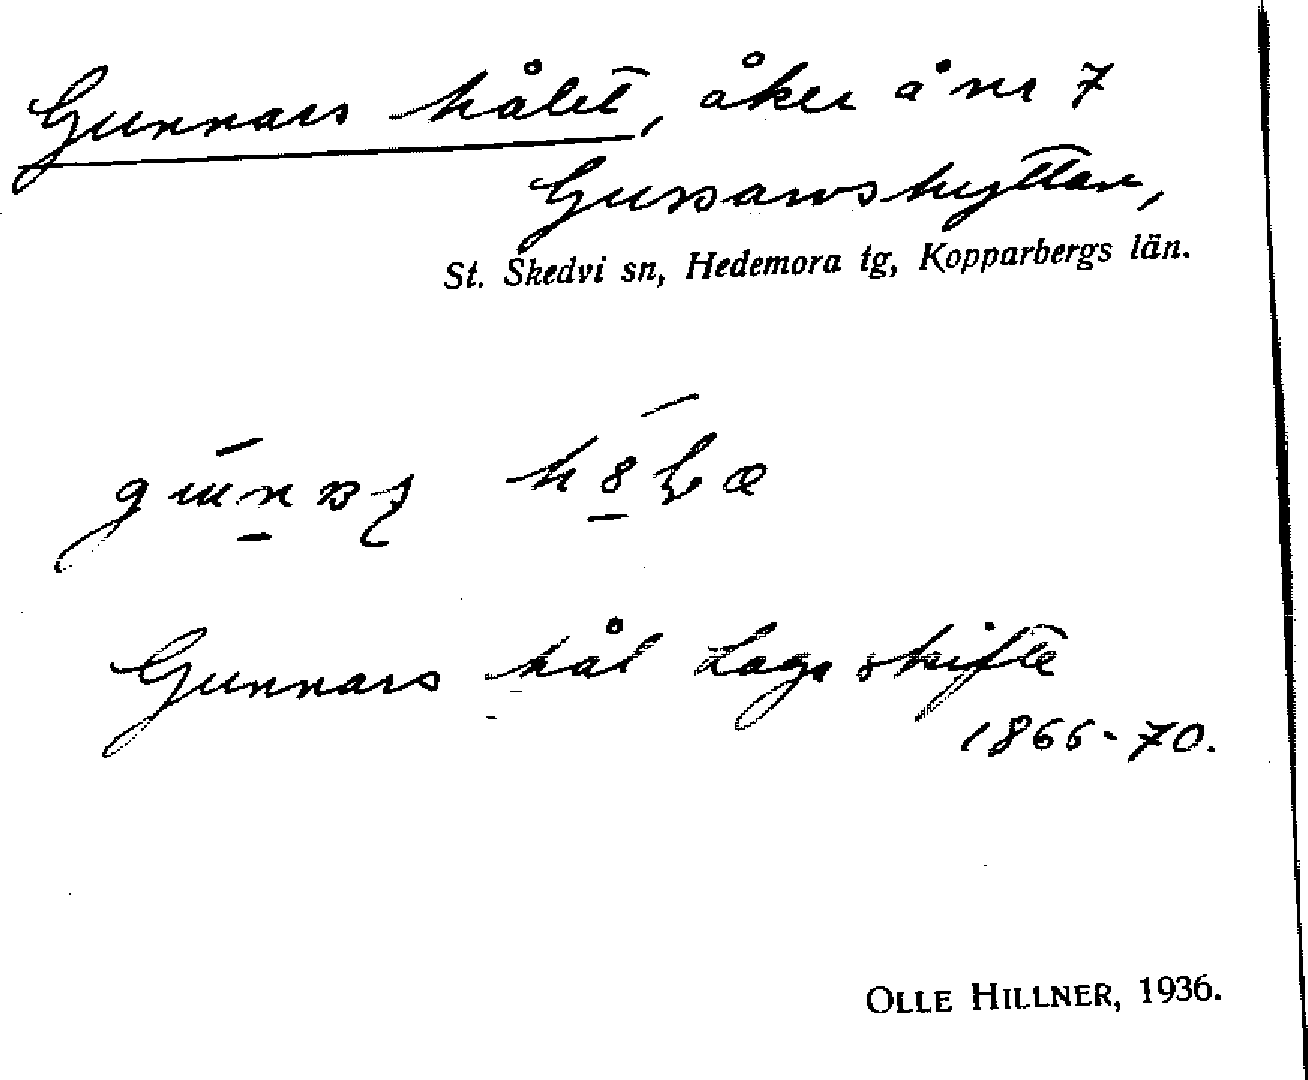 Gunnars hålet, åker å nr 7
Gussarvshyttan,
St. Skedvi sn, Hedemora tg, Kopparbergs län.
Gunnars hål Laga skifte
1866-70.
OLLE HILLNER, 1936.